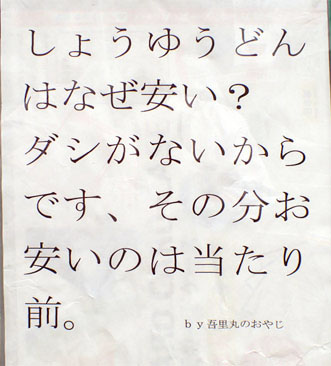 しょうゆうどん
はなぜ安い？
ダシがないから
です、その分お
安いのは当たり
前。
ｂｙ吾里丸のおやじ